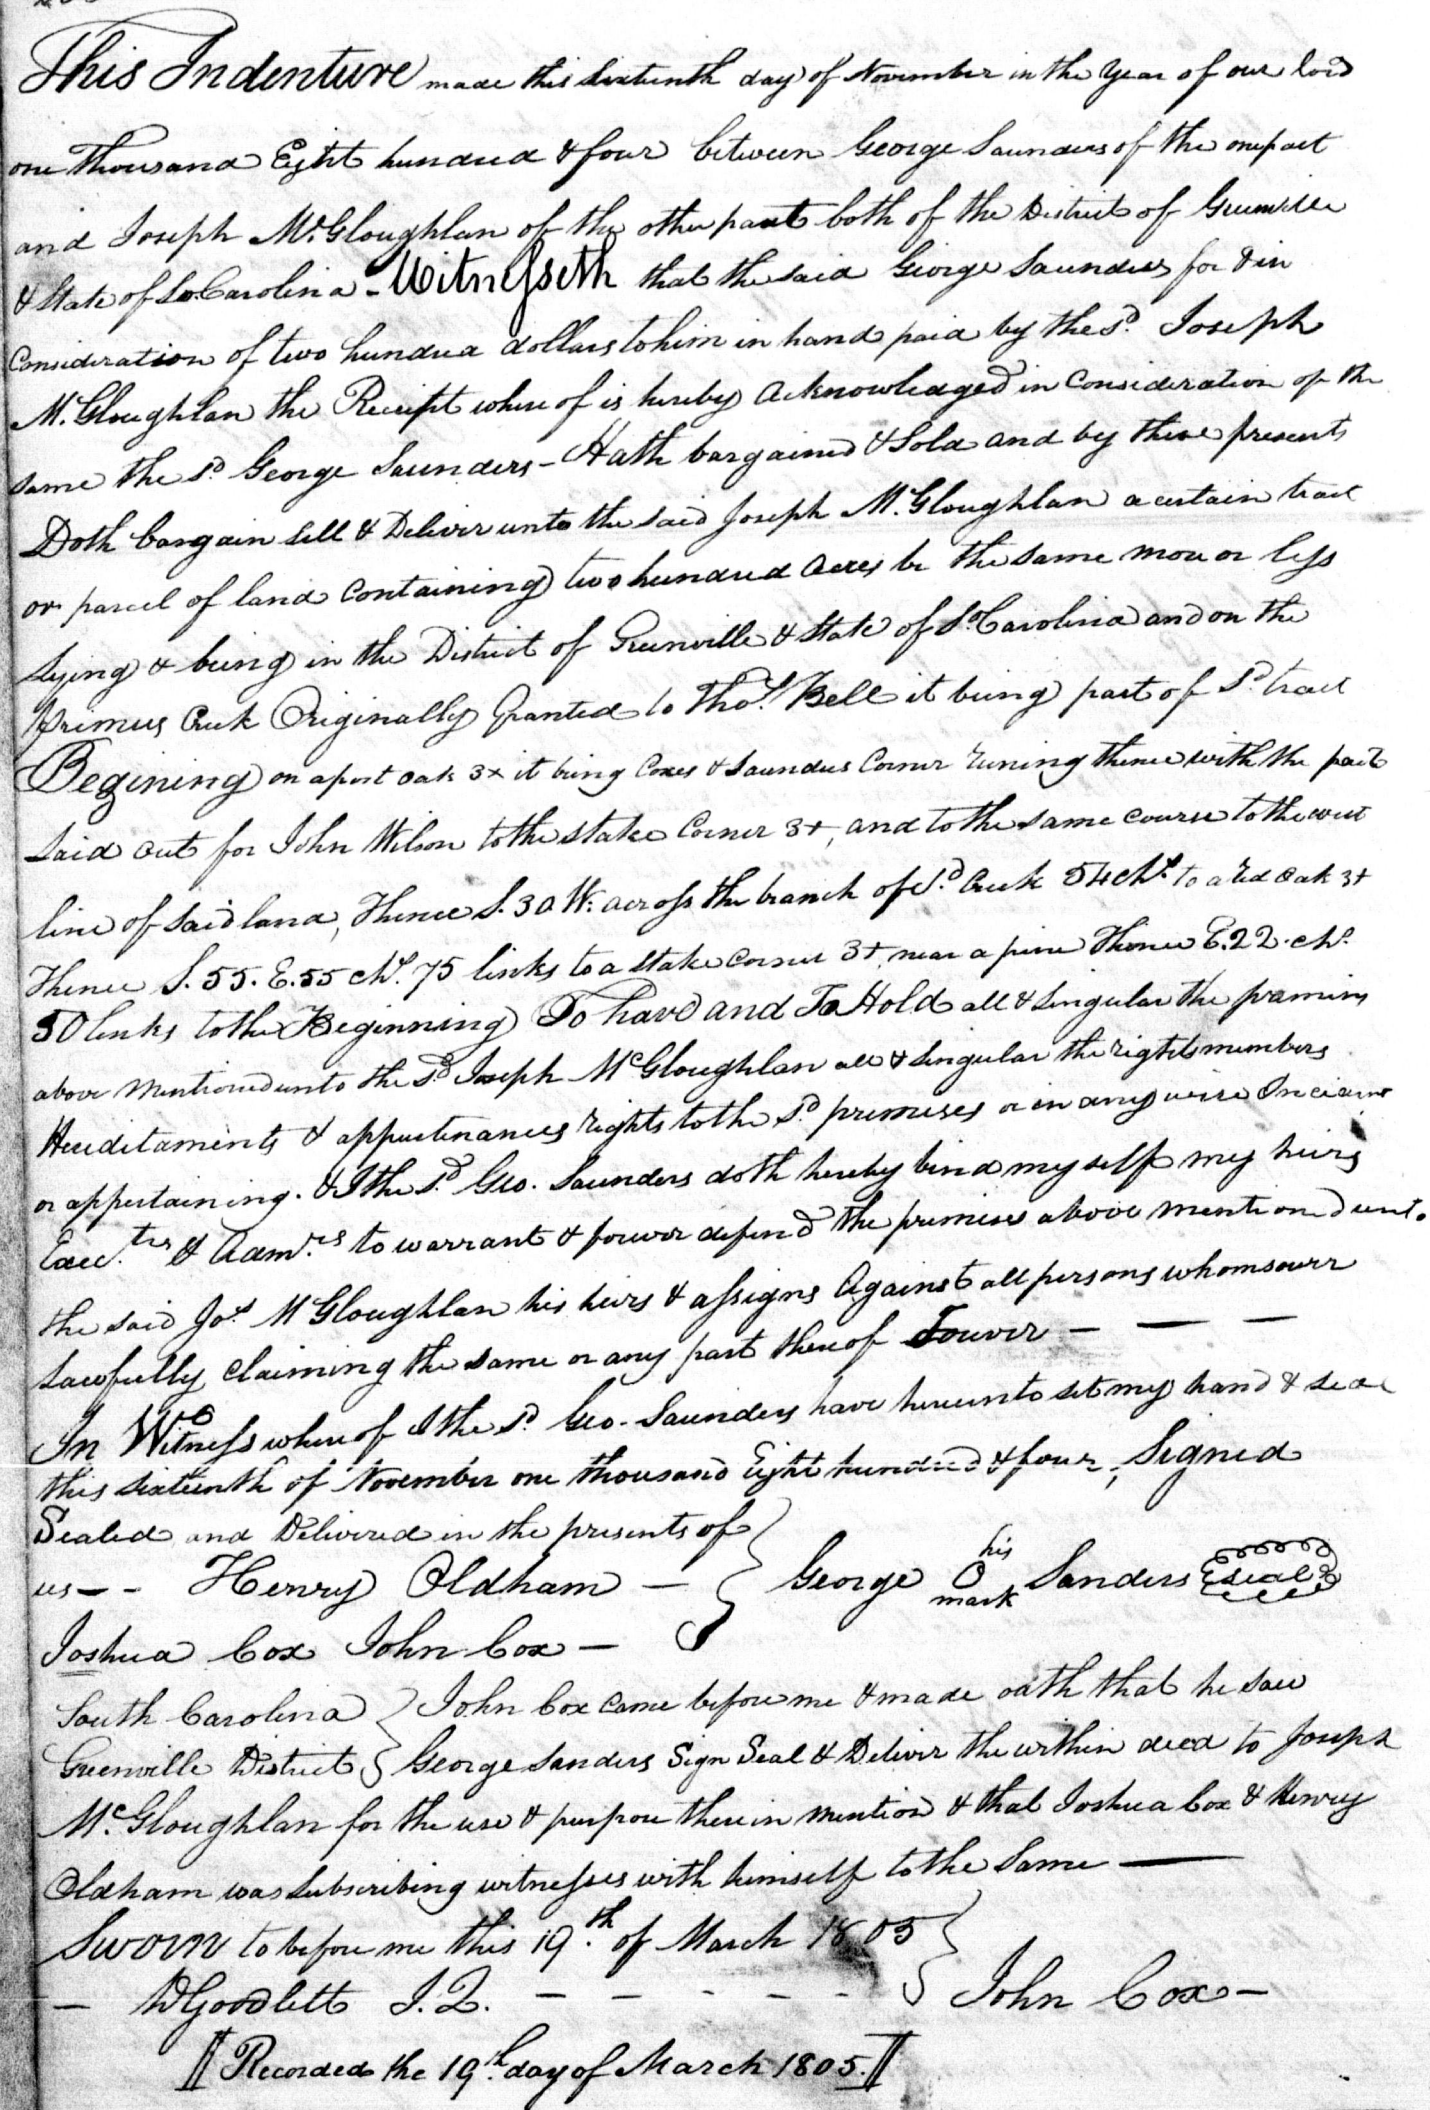 This Indenture made this Sixteenth day of November in the Year of our lord
one Thousand Eight hundred & four between George Saunders of the one part
and Joseph Mc.Gloughlan of the other part both of the District of Greenville
& State of So. Carolina - Witnesseth that the said George Saunders for & in
Consideration of two hundred dollars to him in hand paid by the sd. Joseph
Mc.Gloughlan the Receipt where of is hereby Acknowledged in Consideration of the
same the sd. George Saunders - Hath bargained & Sold and by these presents
Doth bargain sell & Deliver unto the said Joseph Mc.Gloughlan a certain tract
or parcel of land Containing two hundred Acres be the same more or less
lying & being in the District of Greenville & State of So. Carolina and on the
primus Creek Originally Granted to Thos. Bell it being part of sd. tract
Begining on a post oak 3x it being Coxes & Saunders Corner runing thence with the part
laid out for John Wilson to the stake Corner 3x, and to the same course to the west
line of said land, Thence S. 30 W. across the branch of sd. Creek 54 chs. to a red oak 3x
Thence S. 55. E. 55 chs. 75 links to a stake corner 3x near a pine Thence E. 22. chs.
50 links to the Beginning To have and To Hold all & singular the premises
above mentioned unto the sd. Joseph McGloughlan all & singular the rights members
Hereditaments & appurtenances rights to the sd. premises or in any wise
or appertaining. & I the sd. Geo. Saunders doth hereby bind my self my heirs
Exec.trs & Adm.rs to warrant & forever defend the premises above mentioned unto
the said Jos. McGloughlan his heirs & assigns Against all persons whomsoever
lawfully claiming the same or any part thereof Forever - - -
In Witness where of I the sd. Geo. Saunders have hereunto set my hand & seal
this sixteenth of November one thousand Eight hundred & four, Signed
Sealed and Delivered in the presents of
us - - Henry Oldham - George his O mark Sanders seal
Joshua Cox John Cox -
South Carolina John Cox came before me & made oath that he saw
Greenville District George Sanders Sign Seal & Deliver the within deed to Joseph
Mc.Gloughlan for the use & purpose therein mention & that Joshua Cox & Henry
Oldham was subscribing witnesses with himself to the Same -
Sworn to before me this 19.th of March 1805
- D Goodlett J.Q. - - - - - John Cox -
Recorded the 19th. day of March 1805.